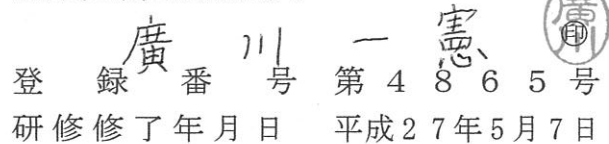 廣川一憲 ㊞
登録番号 第4865号
研修修了年月日 平成27年5月7日